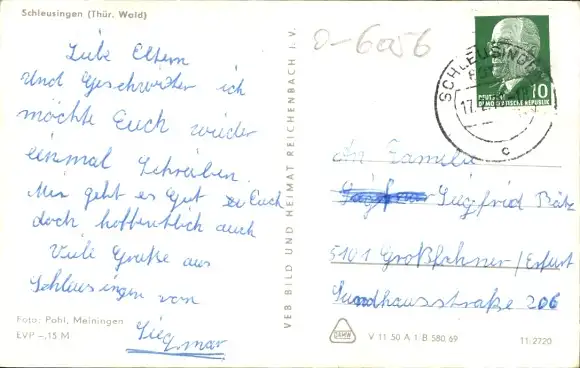 Schleusingen (Thür. Wald)
Liebe Eltern
und Geschwister ich
möchte Euch wieder
einmal Schreiben.
Mir geht es Gut Euch
doch hoffentlich auch
Viele Grüße aus
Schleusingen von
Siegmar
Foto: Pohl, Meiningen
EVP –,15 M
VEB BILD UND HEIMAT REICHENBACH I. V.
0-6056
SCHLEUSINGEN
17.
c
10
DEUTSCHE
DEMOKRATISCHE REPUBLIK
An Familie
Siegfried
5101 Großfahner/Erfurt
Sundhausstraße 206
V 11 50 A 1 B 580/69
11/2720